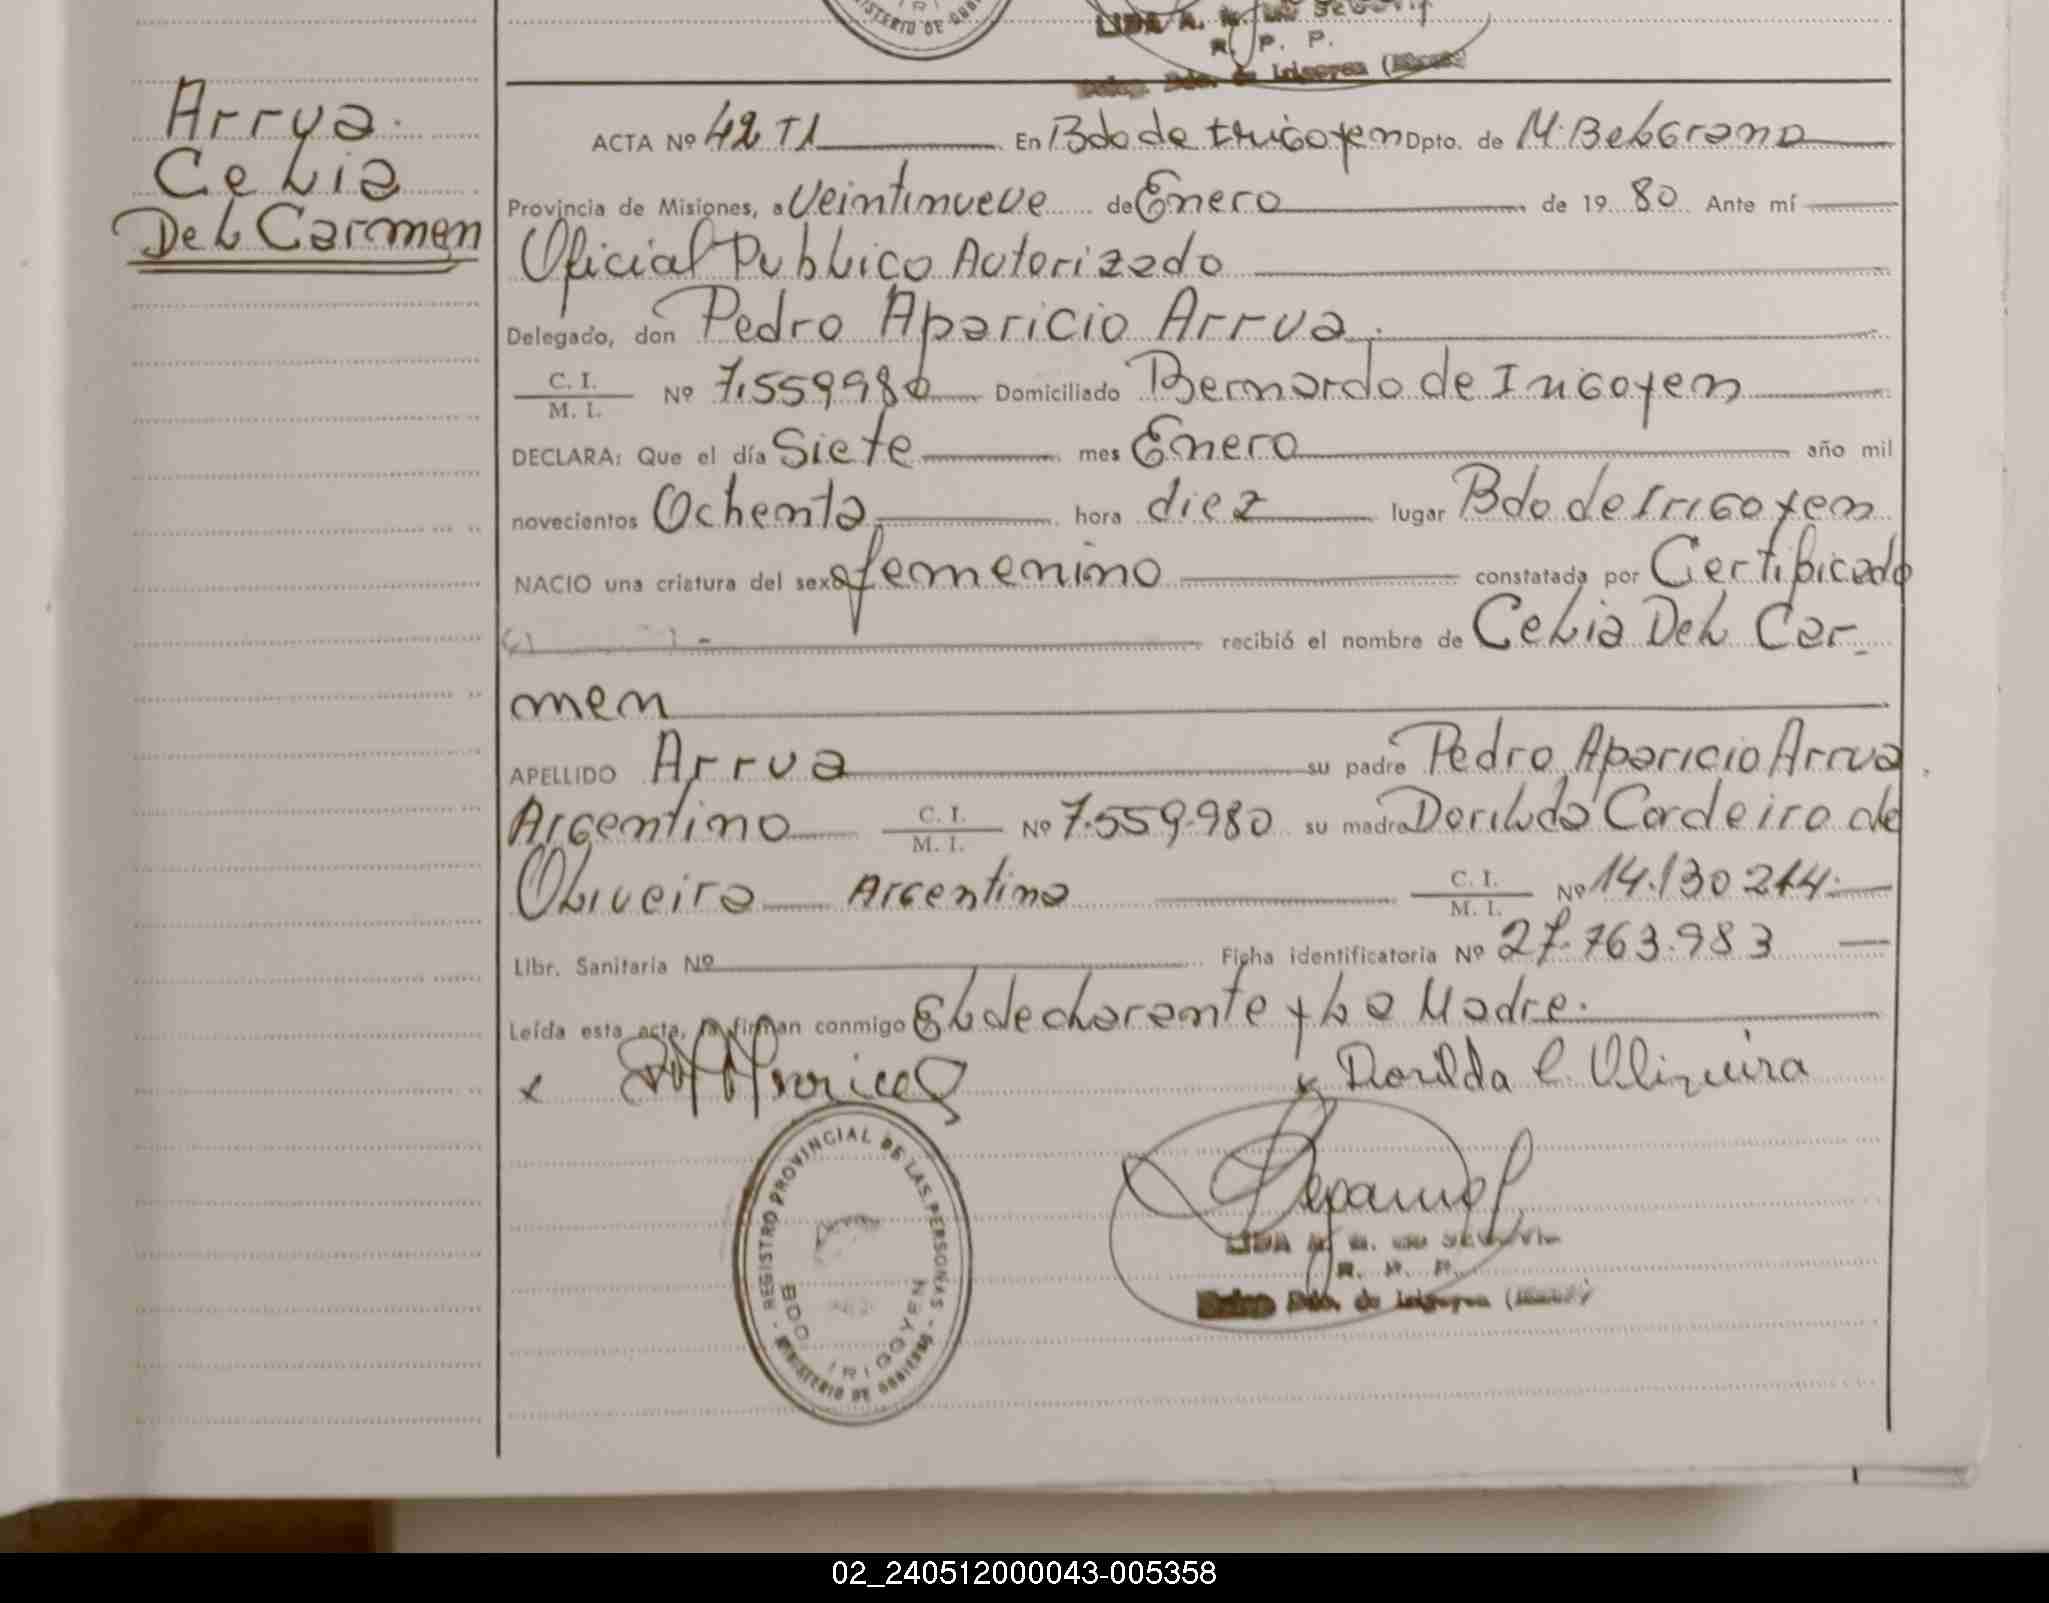 Arrua
Celia
Del Carmen
MINISTERIO DE GOB
R. P. P.
Bdo. de Irigoyen
ACTA Nº 42 T1 En Bdo de Irigoyen Dpto. de M. Belgrano
Provincia de Misiones, a Veintinueve de Enero de 1980 Ante mí
Oficial Publico Autorizado
Delegado, don Pedro Aparicio Arrua.
C. I.
M. I.
Nº 7.559.980 Domiciliado Bernardo de Irigoyen
DECLARA: Que el día Siete mes Enero año mil
novecientos Ochenta hora diez lugar Bdo de Irigoyen
NACIO una criatura del sexo femenino constatada por Certificado
recibió el nombre de Celia Del Car-
men
APELLIDO Arrua su padre Pedro Aparicio Arrua
Argentino C. I.
M. I. Nº 7.559.980 su madre Dorilda Cordeiro de
Oliveira Argentina C. I.
M. I. Nº 14.130.214.
Libr. Sanitaria Nº Ficha identificatoria Nº 27.763.983
Leída esta acta, la firman conmigo El declarante y La Madre.
x x Dorilda C. Oliveira
REGISTRO PROVINCIAL DE LAS PERSONAS
BDO. IRIGOYEN
MINISTERIO DE GOBIERNO
LIDA
Bdo. de Irigoyen
02_240512000043-005358